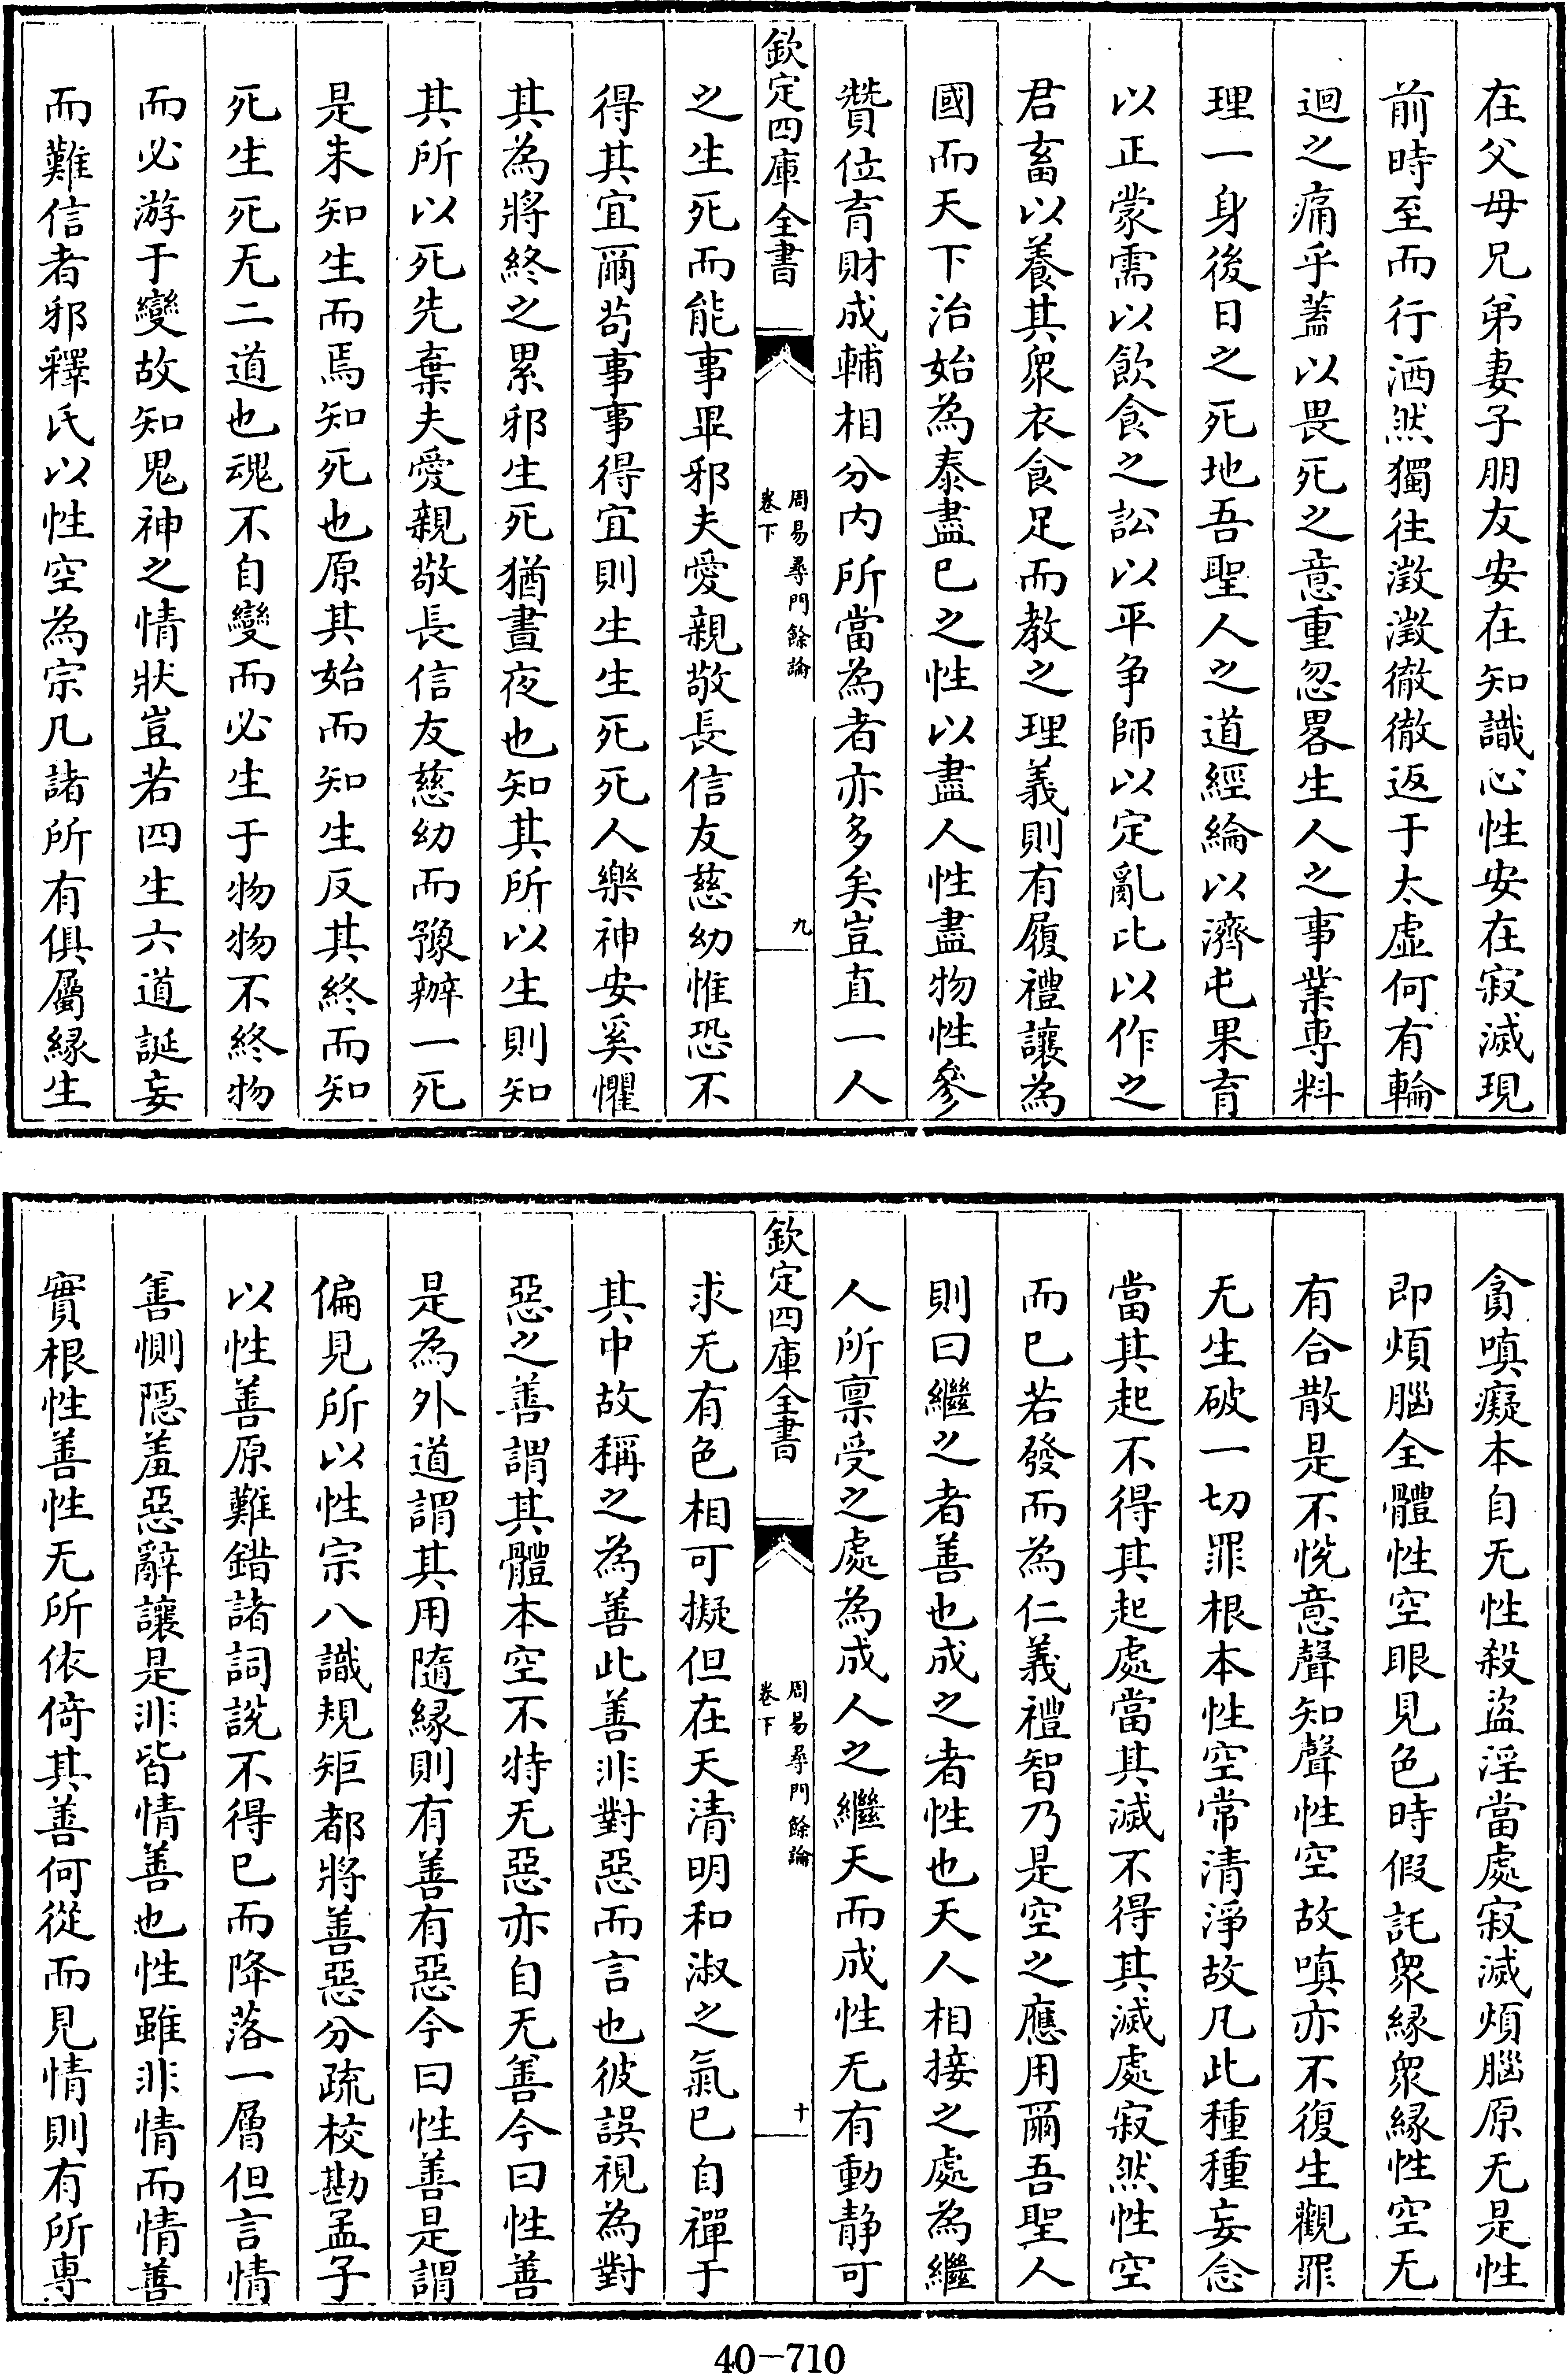 在父母兄弟妻子朋友安在知識心性安在寂滅現
前時至而行洒然獨往澂澂徹徹返于太虛何有輪
迴之痛乎蓋以畏死之意重忽畧生人之事業専料
理一身後日之死地吾聖人之道經綸以濟屯果育
以正蒙需以飲食之訟以平争師以定亂比以作之
君畜以養其衆衣食足而教之理義則有履禮讓為
國而天下治始為泰盡已之性以盡人性盡物性參
贊位育財成輔相分内所當為者亦多矣豈直一人
欽定四庫全書
周易尋門餘論
卷下
九
之生死而能事畢邪夫愛親敬長信友慈幼惟恐不
得其宜爾茍事事得宜則生生死死人樂神安奚懼
其為將終之累邪生死猶晝夜也知其所以生則知
其所以死先棄夫愛親敬長信友慈幼而豫辦一死
是未知生而焉知死也原其始而知生反其終而知
死生死无二道也魂不自變而必生于物物不終物
而必游于變故知鬼神之情狀豈若四生六道誕妄
而難信者邪釋氏以性空為宗凡諸所有俱屬緣生
貪嗔癡本自无性殺盜淫當處寂滅煩腦原无是性
即煩腦全體性空眼見色時假託衆緣衆緣性空无
有合散是不悅意聲知聲性空故嗔亦不復生觀罪
无生破一切罪根本性空常清淨故凡此種種妄念
當其起不得其起處當其滅不得其滅處寂然性空
而已若發而為仁義禮智乃是空之應用爾吾聖人
則曰繼之者善也成之者性也天人相接之處為繼
人所禀受之處為成人之繼天而成性无有動静可
欽定四庫全書
周易尋門餘論
卷下
十
求无有色相可擬但在天清明和淑之氣已自禪于
其中故稱之為善此善非對惡而言也彼誤視為對
惡之善謂其體本空不特无惡亦自无善今曰性善
是為外道謂其用隨緣則有善有惡今曰性善是謂
偏見所以性宗八識規矩都將善惡分疏校勘孟子
以性善原難錯諸詞說不得已而降落一層但言情
善惻隱羞惡辭讓是非皆情善也性雖非情而情善
實根性善性无所依倚其善何從而見情則有所専
40-710